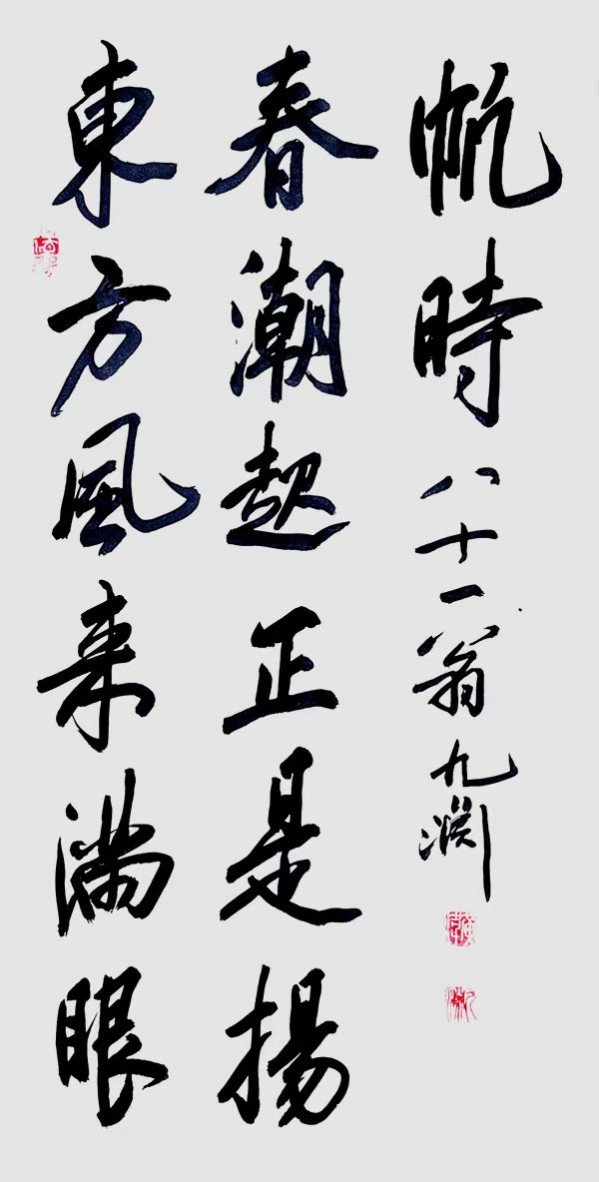 東方風来滿眼
春潮起正是揚
帆時 八十一翁 九渊